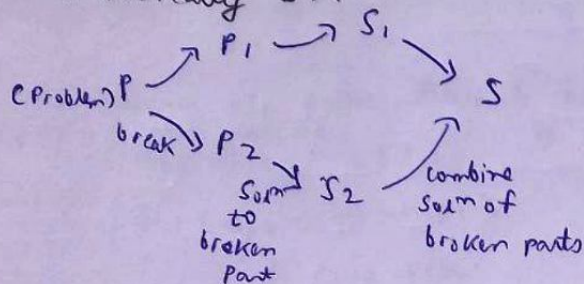 P1 S1
(Problem) P S
break P2 S2
Solⁿ
to
broken
part
combine
solⁿ of
broken parts